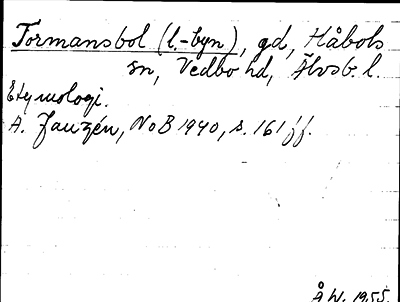 Tormansbol (l.-byn), gd, Håbols
sn, Vedbo hd, Älvsb. l.
Etymologi.
A. Janzén, NoB 1940, s. 161 ff.
Å W. 1955.